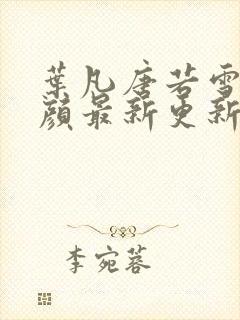 葉凡唐若雪
顏最新更新
李宛蓉